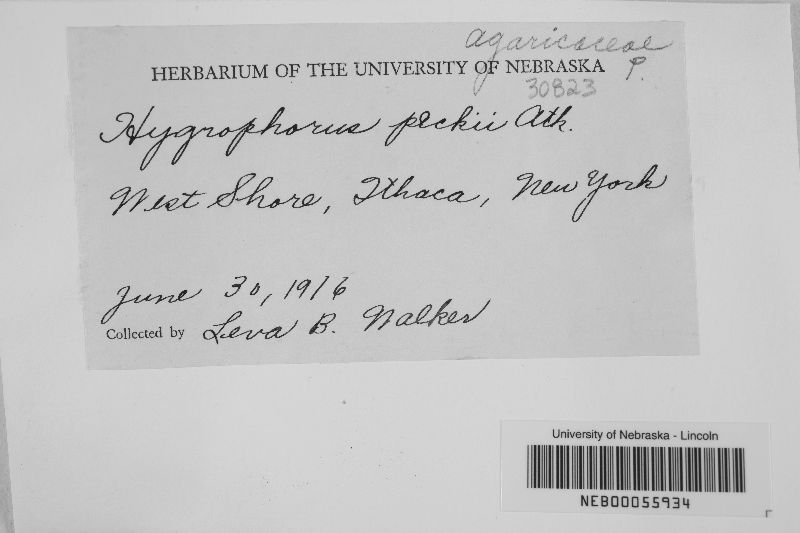 Agaricaceae
HERBARIUM OF THE UNIVERSITY OF NEBRASKA P.
30823
Hygrophorus peckii Atk.
West Shore, Ithaca, New York
June 30, 1916
Collected by Leva B. Walker
University of Nebraska - Lincoln
NEB00055934